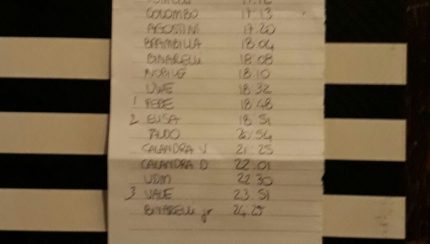 17.12
COLOMBO 17.13
AGOSTINI 17.20
BRAMBILLA 18.04
BINARELLI 18.08
NOBILE 18.10
UWE 18.32
1 BEBE 18.48
2 ELISA 18.51
20.54
CALANDRA V 21.25
CALANDRA D 22.01
UDIN 22.30
3 VALE 23.51
BINARELLI jr 24.25